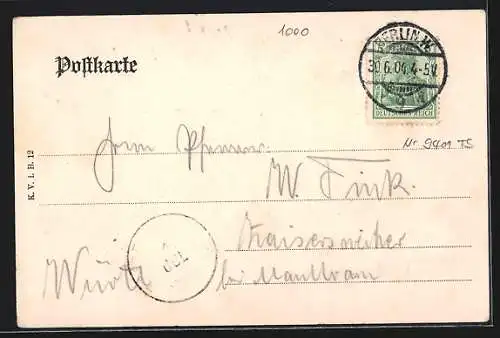 1000
Postkarte
BERLIN W.
30.6.04. 4-5N.
DEUTSCHES REICH
K. V. i. B. 12
Nr 9401 TS
Herrn Pfarrer
W. Finck.
Kaisersweiher
bei Maulbronn
Württ